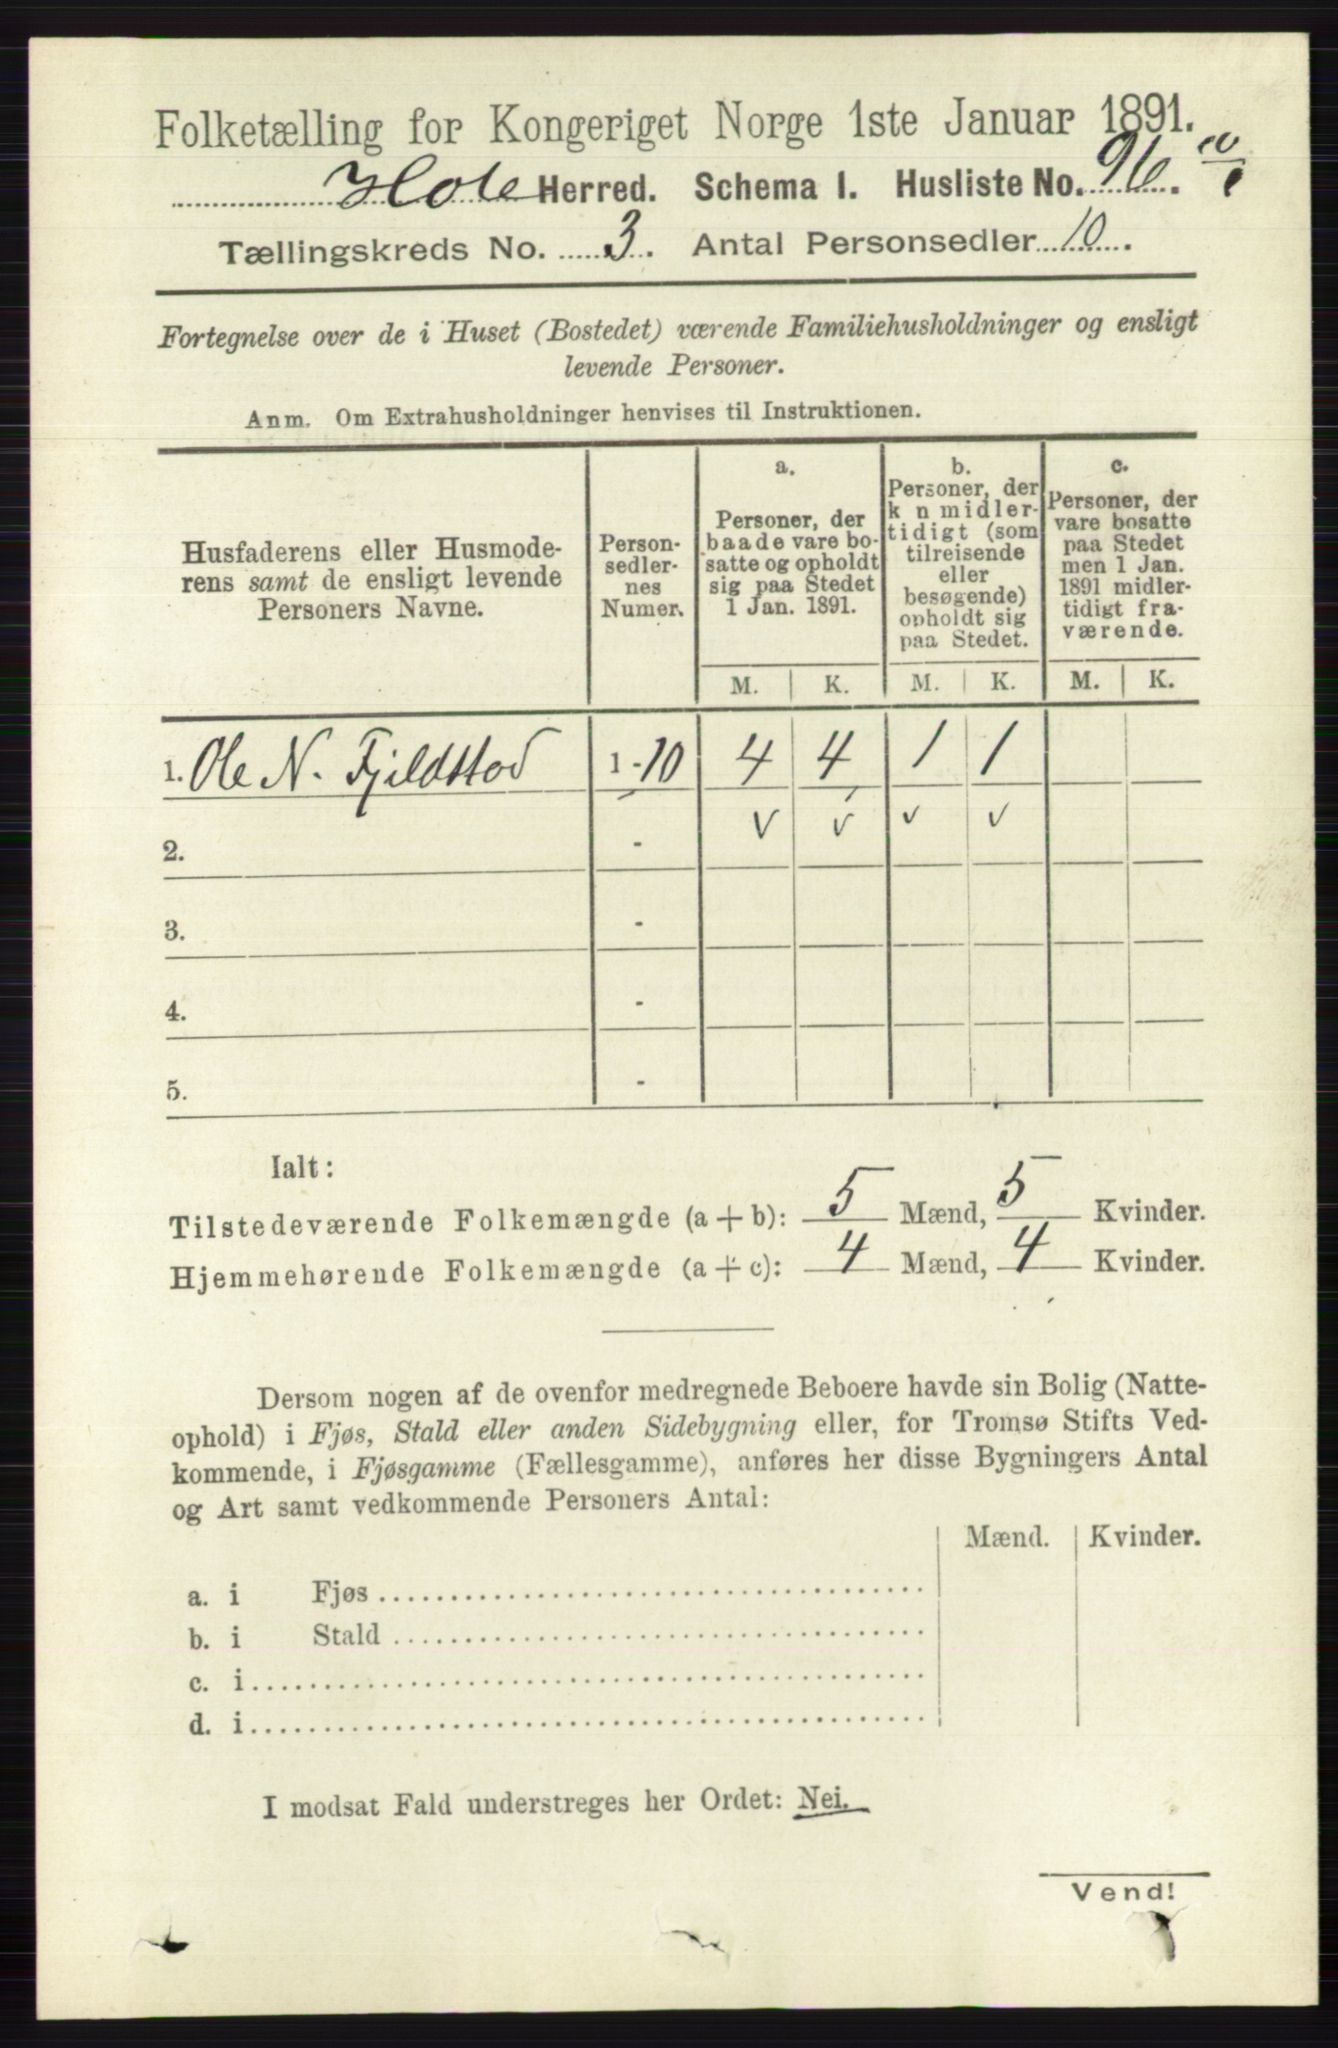 Folketælling for Kongeriget Norge 1ste Januar 1891.
Hole Herred. Schema 1. Husliste No. 96.
Tællingskreds No. 3. Antal Personsedler 10.
Fortegnelse over de i Huset (Bostedet) værende Familiehusholdninger og ensligt
levende Personer.
Anm. Om Extrahusholdninger henvises til Instruktionen.
Husfaderens eller Husmode-
rens samt de ensligt levende
Personers Navne.
Person-
sedler-
nes
Numer.
a.
Personer, der
baade vare bo-
satte og opholdt
sig paa Stedet
1 Jan. 1891.
b.
Personer, der
k n midler-
tidigt (som
tilreisende
eller
besøgende)
opholdt sig
paa Stedet.
c.
Personer, der
vare bosatte
paa Stedet
men 1 Jan.
1891 midler-
tidigt fra-
værende.
M. K. M. K. M. K.
1. Ole N. Fjeldstad 1 - 10 4 4 1 1
v v v v
2. -
3. -
4. -
5. -
Ialt:
Tilstedeværende Folkemængde (a + b): 5 Mænd, 5 Kvinder.
Hjemmehørende Folkemængde (a + c): 4 Mænd, 4 Kvinder.
Dersom nogen af de ovenfor medregnede Beboere havde sin Bolig (Natte-
ophold) i Fjøs, Stald eller anden Sidebygning eller, for Tromsø Stifts Ved-
kommende, i Fjøsgamme (Fællesgamme), anføres her disse Bygningers Antal
og Art samt vedkommende Personers Antal:
Mænd. Kvinder.
a. i Fjøs
b. i Stald
c. i
d. i
I modsat Fald understreges her Ordet: Nei.
Vend!